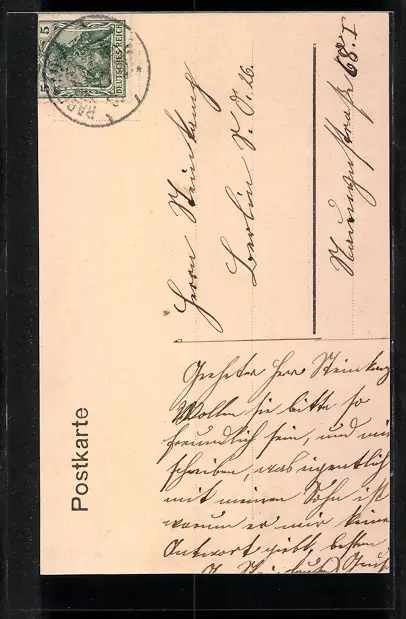 5 5
DEUTSCHES REICH
Postkarte
Herrn Steinkamp
Berlin S. O. 26.
Naunynstraße 68. I
Geehrter Herr Steinkamp
Wollen sie bitte so
freundlich sein, und mir
schreiben, was eigentlich
mit meinen Sohn ist
warum er mir keine
Antwort giebt, besten